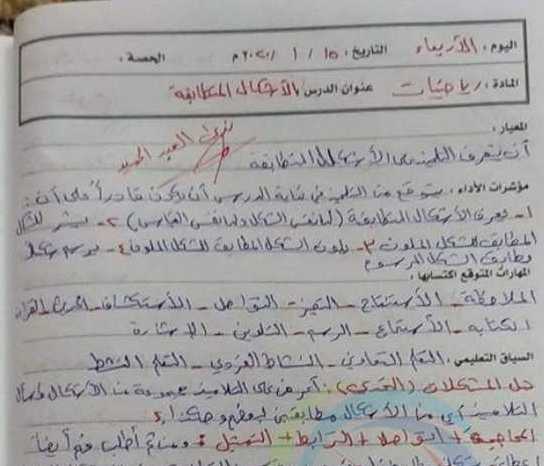 اليوم : الأربعاء التاريخ : ١٥ / ١ / ٢٠٢٠ م الحصة :
المادة : رياضيات عنوان الدرس : الأشكال المتطابقة
المعيار :
أن يتعرف التلميذ على الأشكال المتطابقة
مؤشرات الأداء : يتوقع من التلميذ في نهاية الدرس أن يكون قادراً على أن :
١- يعرف الأشكال المتطابقة (لها نفس الشكل ولها نفس القياس) ٢- يشير للشكل
المطابق للشكل الملون ٣- يلون الشكل المطابق للشكل الملون ٤- يرسم شكل
يطابق الشكل المرسوم
المهارات المتوقع اكتسابها :
الملاحظة - الأستنتاج - التميز - التواصل - الأستكشاف - القراءة
الكتابه - الأستماع - الرسم - التلوين - الإشارة
السياق التعليمي : التعلم التعاوني - النشاط الفردي - التعلم النشط
حل المشكلات (التحدي) : أعرض على التلاميذ مجموعة من الأشكال
التلاميذ أي من الأشكال مطابقين لبعضهم وهكذا
+ التواصل + الترابط + التمثيل : ومن ثم أطلب منهم أيضاً